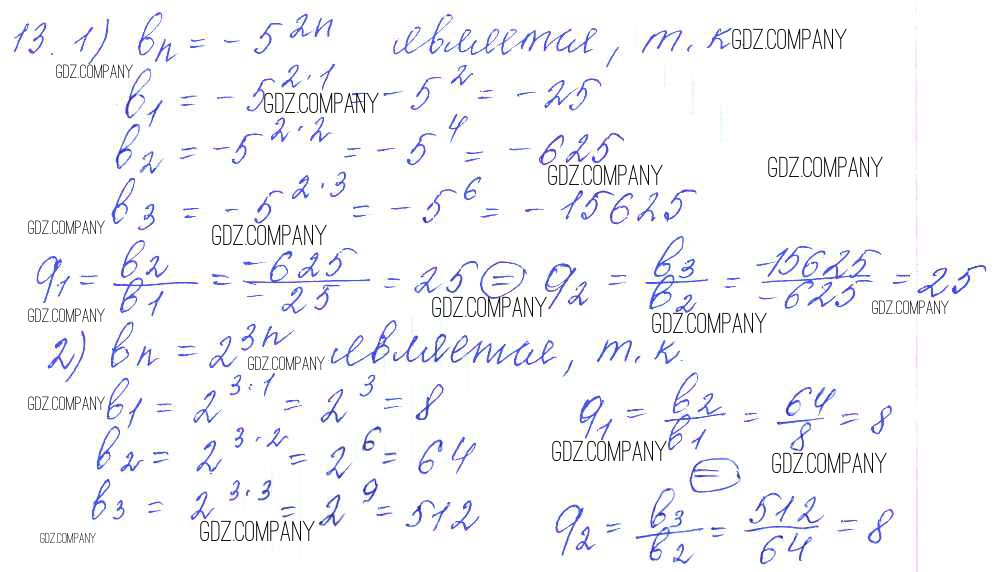 13. 1) bₙ = -5²ⁿ является, т.к GDZ.COMPANY
GDZ.COMPANY
b₁ = -5^(2·1) = -5² = -25
GDZ.COMPANY
b₂ = -5^(2·2) = -5⁴ = -625
GDZ.COMPANY GDZ.COMPANY
b₃ = -5^(2·3) = -5⁶ = -15625
GDZ.COMPANY GDZ.COMPANY
q₁ = b₂/b₁ = -625/-25 = 25 = q₂ = b₃/b₂ = -15625/-625 = 25
GDZ.COMPANY GDZ.COMPANY GDZ.COMPANY GDZ.COMPANY
2) bₙ = 2³ⁿ является, т.к.
GDZ.COMPANY
GDZ.COMPANY b₁ = 2^(3·1) = 2³ = 8
q₁ = b₂/b₁ = 64/8 = 8
b₂ = 2^(3·2) = 2⁶ = 64
GDZ.COMPANY = GDZ.COMPANY
b₃ = 2^(3·3) = 2⁹ = 512
q₂ = b₃/b₂ = 512/64 = 8
GDZ.COMPANY GDZ.COMPANY